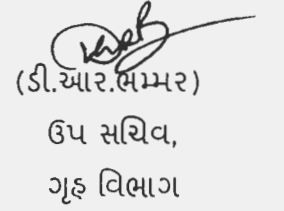 (ડી.આર.ભમ્મર)
ઉપ સચિવ,
ગૃહ વિભાગ